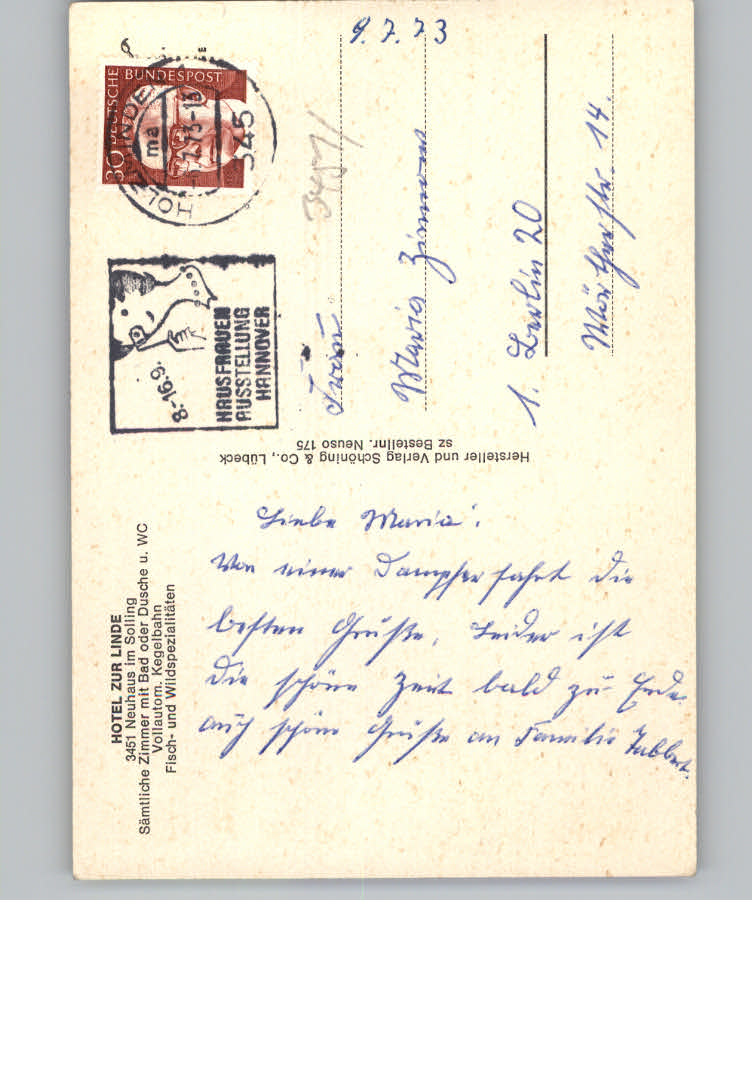 HOTEL ZUR LINDE
3451 Neuhaus im Solling
Sämtliche Zimmer mit Bad oder Dusche u. WC
Vollautom. Kegelbahn
Fisch- und Wildspezialitäten
Liebe Maria!
Von einer Dampferfahrt die
besten Grüße, Leider ist
die schöne Zeit bald zu Ende
auch schöne Grüße an Familie
Hersteller und Verlag Schöning & Co., Lübeck
sz Bestellnr. Neuso 175
9.7.73
DEUTSCHE BUNDESPOST
30
HOLZMINDEN
ma
-13
345
8.-16.9.
HAUSFRAUEN
AUSSTELLUNG
HANNOVER
3451
Frau
Maria
1. Berlin 20
14.